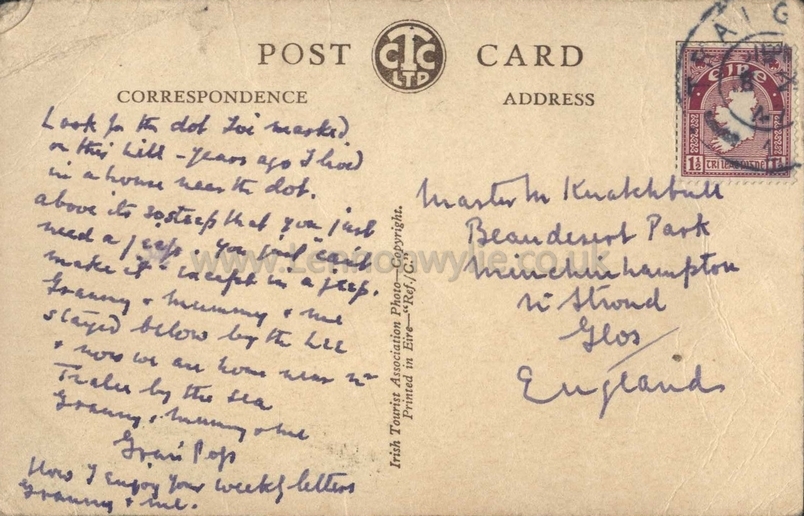 POST CARD
CTC
LTD
CORRESPONDENCE
ADDRESS
Look for the dot I've marked
on this hill - years ago I lived
in a house near the dot.
above its so steep that you just
need a jeep. you just "can't
make it" except in a jeep.
Granny & Mummy & me
stayed below by the
& now we are home near
Tralee by the sea
Granny & Mummy & me
Gran Pops
How I enjoy your weekly letters
Granny & me.
Irish Tourist Association Photo—Copyright.
Printed in Eire—"Ref./C."
ÉIRE
1½
Master M Knatchbull
Beaudesert Park
Minchinhampton
Nr Stroud
Glos
England
www.Lennonwylie.co.uk